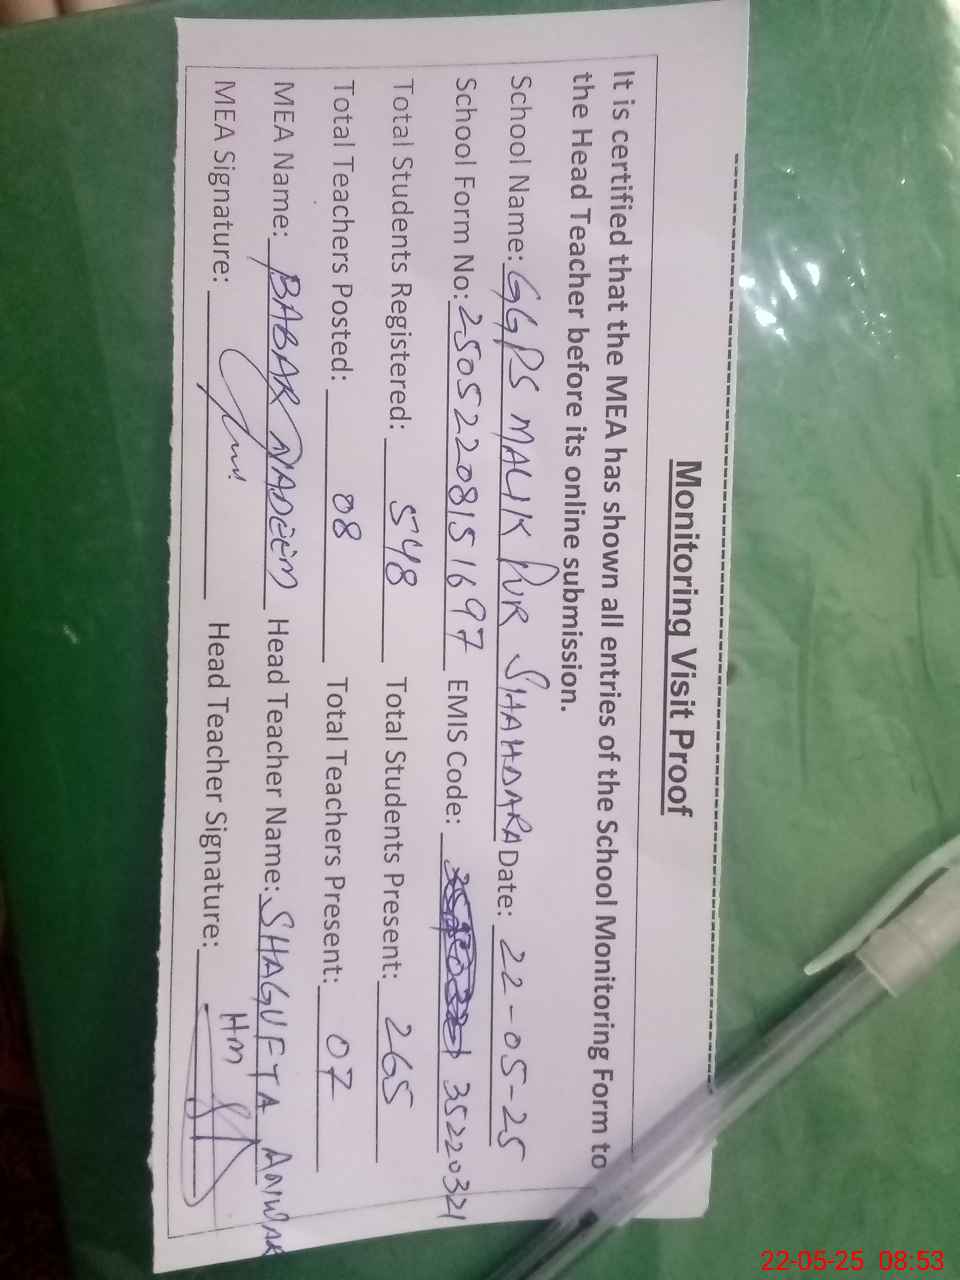 Monitoring Visit Proof
It is certified that the MEA has shown all entries of the School Monitoring Form to
the Head Teacher before its online submission.
School Name: GGPS MALIK PUR SHAHDARA Date: 22-05-25
School Form No: 25052208151697 EMIS Code: 35220321
Total Students Registered: 548 Total Students Present: 265
Total Teachers Posted: 08 Total Teachers Present: 07
MEA Name: BABAR NADEEM Head Teacher Name: SHAGUFTA ANWAR
MEA Signature: Head Teacher Signature: HM
22-05-25 08:53